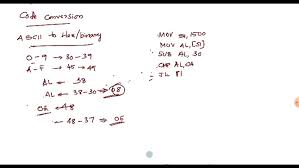 Code Conversion
ASCII to Hex/binary
0-9 → 30-39
A-F → 45 → 49
AL ← 38
AL ← 38-30 ⇒ 08
0E ← 48
← 48-37 ⇒ 0E
MOV SI, 1500
MOV AL, [SI]
SUB AL, 30
CMP AL, 0A
JL S1